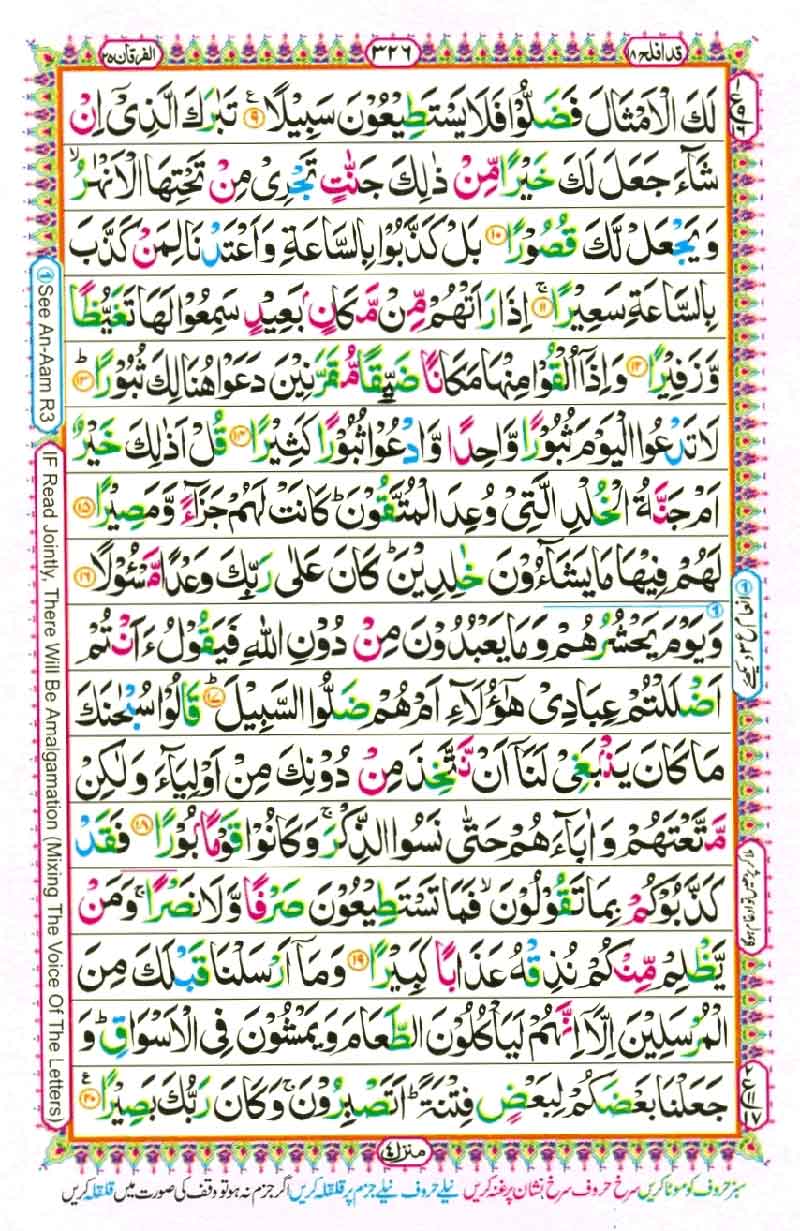 قد افلح ۱۸
۳۲۶
الفرقان ۲۵
لَكَ الْاَمْثَالَ فَضَلُّوْا فَلَا يَسْتَطِيْعُوْنَ سَبِيْلًا ۹ تَبٰرَكَ الَّذِىْٓ اِنْ
شَآءَ جَعَلَ لَكَ خَيْرًا مِّنْ ذٰلِكَ جَنّٰتٍ تَجْرِىْ مِنْ تَحْتِهَا الْاَنْهٰرُ ۙ
وَ يَجْعَلْ لَّكَ قُصُوْرًا ۱۰ بَلْ كَذَّبُوْا بِالسَّاعَةِ وَ اَعْتَدْنَا لِمَنْ كَذَّبَ
بِالسَّاعَةِ سَعِيْرًا ۚ ۱۱ اِذَا رَاَتْهُمْ مِّنْ مَّكَانٍۭ بَعِيْدٍ سَمِعُوْا لَهَا تَغَيُّظًا
وَّ زَفِيْرًا ۱۲ وَ اِذَآ اُلْقُوْا مِنْهَا مَكَانًا ضَيِّقًا مُّقَرَّنِيْنَ دَعَوْا هُنَالِكَ ثُبُوْرًا ؕ ۱۳
لَا تَدْعُوا الْيَوْمَ ثُبُوْرًا وَّاحِدًا وَّ ادْعُوْا ثُبُوْرًا كَثِيْرًا ۱۴ قُلْ اَذٰلِكَ خَيْرٌ
اَمْ جَنَّةُ الْخُلْدِ الَّتِىْ وُعِدَ الْمُتَّقُوْنَ ؕ كَانَتْ لَهُمْ جَزَآءً وَّ مَصِيْرًا ۱۵
لَهُمْ فِيْهَا مَا يَشَآءُوْنَ خٰلِدِيْنَ ؕ كَانَ عَلٰى رَبِّكَ وَعْدًا مَّسْئُوْلًا ۱۶
وَ يَوْمَ يَحْشُرُهُمْ وَ مَا يَعْبُدُوْنَ مِنْ دُوْنِ اللّٰهِ فَيَقُوْلُ ءَاَنْتُمْ
اَضْلَلْتُمْ عِبَادِىْ هٰٓؤُلَآءِ اَمْ هُمْ ضَلُّوا السَّبِيْلَ ؕ ۱۷ قَالُوْا سُبْحٰنَكَ
مَا كَانَ يَنْۢبَغِىْ لَنَآ اَنْ نَّتَّخِذَ مِنْ دُوْنِكَ مِنْ اَوْلِيَآءَ وَ لٰكِنْ
مَّتَّعْتَهُمْ وَ اٰبَآءَهُمْ حَتّٰى نَسُوا الذِّكْرَ ۚ وَ كَانُوْا قَوْمًۢا بُوْرًا ۱۸ فَقَدْ
كَذَّبُوْكُمْ بِمَا تَقُوْلُوْنَ ۙ فَمَا تَسْتَطِيْعُوْنَ صَرْفًا وَّ لَا نَصْرًا ۚ وَ مَنْ
يَّظْلِمْ مِّنْكُمْ نُذِقْهُ عَذَابًا كَبِيْرًا ۱۹ وَ مَآ اَرْسَلْنَا قَبْلَكَ مِنَ
الْمُرْسَلِيْنَ اِلَّآ اِنَّهُمْ لَيَاْكُلُوْنَ الطَّعَامَ وَ يَمْشُوْنَ فِى الْاَسْوَاقِ ؕ وَ
جَعَلْنَا بَعْضَكُمْ لِبَعْضٍ فِتْنَةً ؕ اَتَصْبِرُوْنَ ۚ وَ كَانَ رَبُّكَ بَصِيْرًا ۲۰
① See An-Aam R3
IF Read Jointly, There Will Be Amalgamation (Mixing The Voice Of The Letters)
منزل ۴
سبز حروف کو موٹا کریں سرخ حروف سرخ نشان پر غنہ کریں نیلے حروف نیلے جزم پر قلقلہ کریں اگر جزم نہ ہو تو وقف کی صورت میں قلقلہ کریں